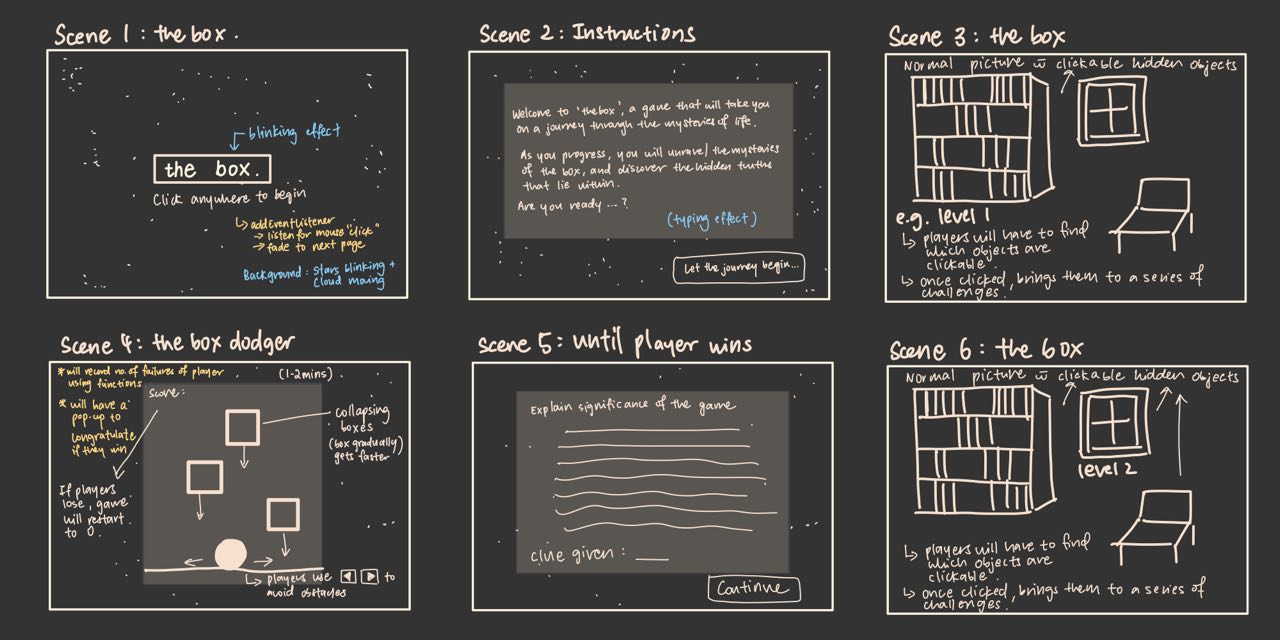 Scene 1 : the box.
blinking effect
the box.
Click anywhere to begin
↳ addEventListener
→ listen for mouse "click"
→ fade to next page
Background : stars blinking +
cloud moving
Scene 2 : Instructions
Welcome to 'the box', a game that will take you
on a journey through the mysteries of life.
As you progress, you will unravel the mysteries
of the box, and discover the hidden truths
that lie within.
Are you ready ... ?
(typing effect)
Let the journey begin...
Scene 3 : the box
Normal picture w̄ clickable hidden objects
e.g. level 1
↳ players will have to find
which objects are
clickable.
↳ once clicked, brings them to a series of
challenges.
Scene 4 : the box dodger
* will record no. of failures of player
using functions
(1-2mins)
* will have a
pop-up to
congratulate
if they win
Score :
collapsing
boxes
(box gradually
gets faster)
If players
lose, game
will restart
to 0.
↳ players use ◀ ▶ to
avoid obstacles
Scene 5 : until player wins
Explain significance of the game
clue given : ___
Continue
Scene 6 : the box
Normal picture w̄ clickable hidden objects
level 2
↳ players will have to find
which objects are
clickable.
↳ once clicked, brings them to a series of
challenges.